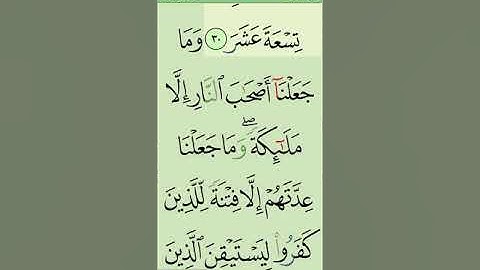 تِسْعَةَ عَشَرَ ﴿٣٠﴾ وَمَا
جَعَلْنَآ أَصْحَٰبَ ٱلنَّارِ إِلَّا
مَلَٰٓئِكَةً ۖ وَمَا جَعَلْنَا
عِدَّتَهُمْ إِلَّا فِتْنَةً لِّلَّذِينَ
كَفَرُوا۟ لِيَسْتَيْقِنَ ٱلَّذِينَ